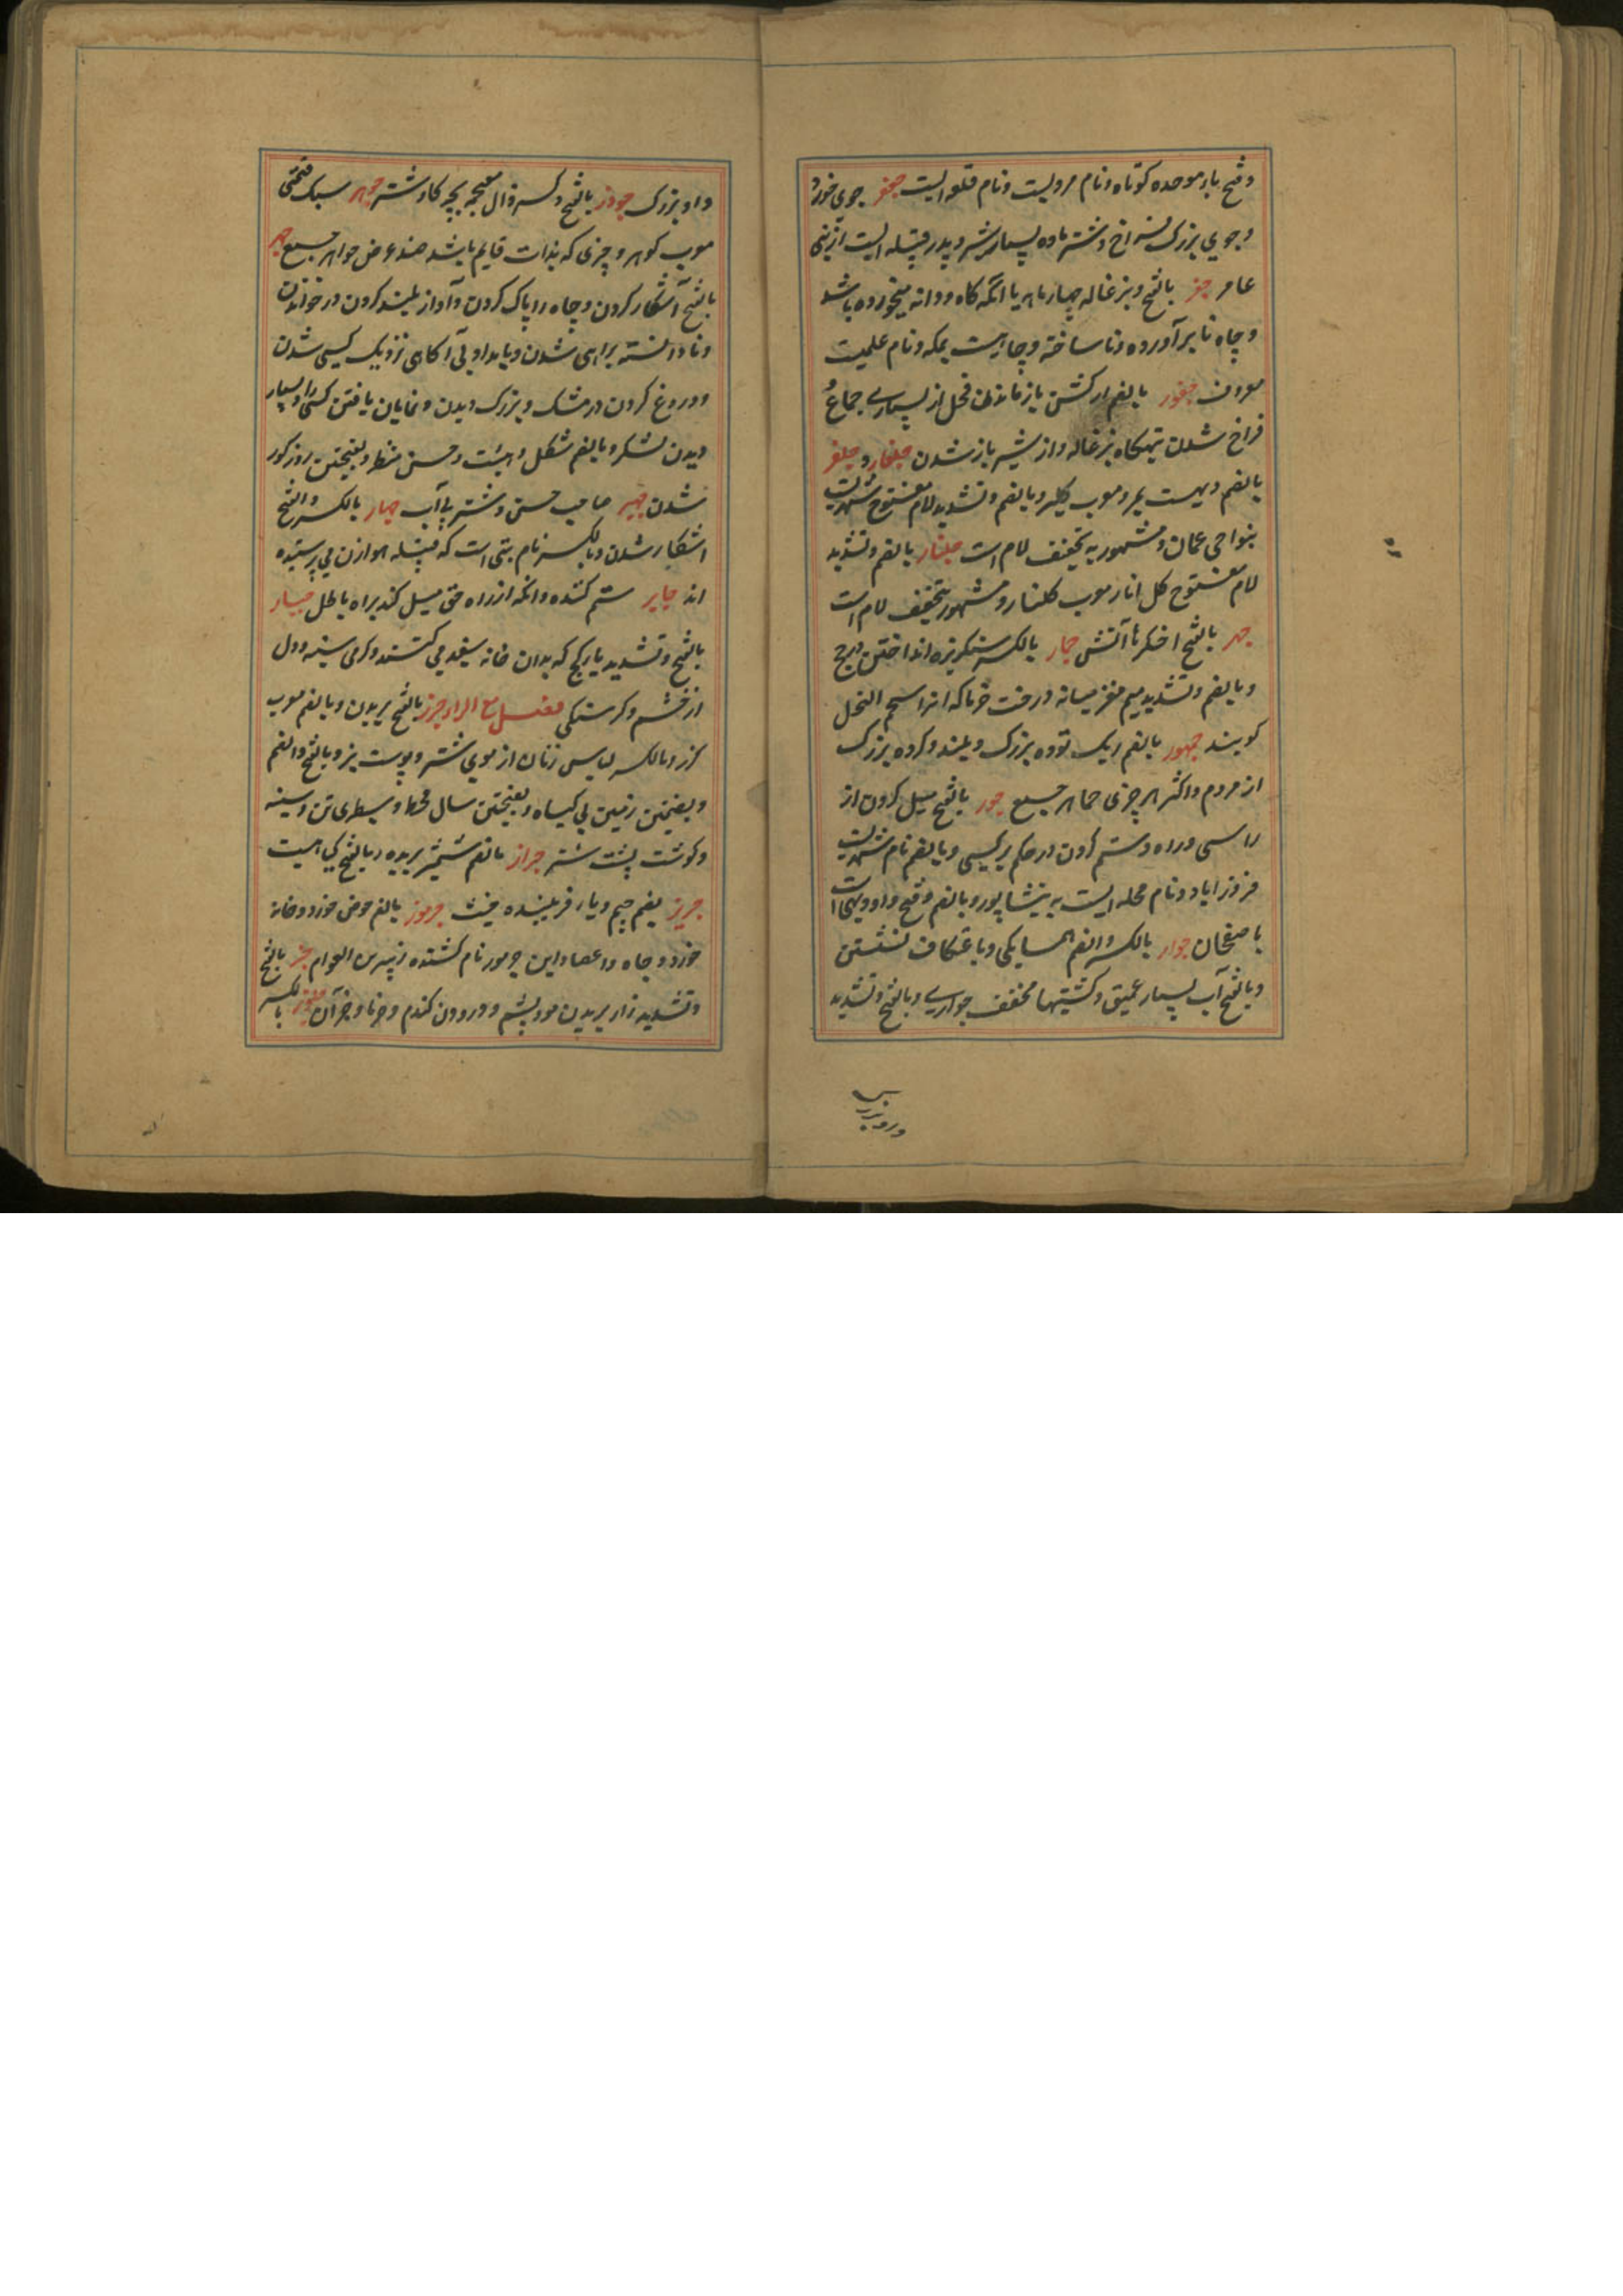 وفتح باء موحده کوتاه و نام مردیست و نام قلعه ایست جعفر جوی خورد
و جوی بزرگ فراخ و شتر ماده بسیار شیر و پدر قبیله ایست از بنی
عامر جفر بالفتح و بزغاله چهار ماهه یا آنکه کاه و دانه میخورده باشد
و چاه نا برآورده و نا ساخته و چاهیست بمکه و نام علمیست
معروف جفور بالضم از کشتن باز ماندن فحل از بسیاری جماع و
فراخ شدن تهیگاه بزغاله و از شیر باز شدن جلفار و جلفر
بالضم دیهست بمرو معرب کلبر و بالضم و تشدید لام مفتوح شهریست
بنواحی عمان و مشهور به تخفیف لام است جلنار بالضم و تشدید
لام مفتوح گل انار معرب گلنار و مشهور بتخفیف لام است
جمر بالفتح اخکرها آتش جمار بالکسر سنگریزه انداختن در حج
و بالضم و تشدید میم مغز میانه درخت خرما که انرا شحم النخل
گویند جمهور بالضم ریک توده بزرک و بلند و کروه بزرک
از مردم و اکثر هر چیزی جماهر جمع جور بالفتح میل کردن از
راستی و راه و ستم کردن در حکم بر کسی و بالضم نام شهریست
فروزاباد و نام محله ایست به نیشاپور و بالضم و فتح واو دیهی است
باصفهان جوار بالکسر و الضم همسایکی و باعتکاف نشستن
و بالفتح آب بسیار عمیق و کشتیها مخفف جواری و بالفتح و تشدید
واو بزرک جوذر بالفتح و کسر ذال معجمه بچه کاو دشتی جوهر سبک قیمتی
معرب کوهر و چیزی که بذات قایم باشد ضد عرض جواهر جمع جهر
بالفتح آشکار کردن و چاه را پاک کردن و آواز بلند کردن در خواندن
و نادانسته براهی شدن و بامداد بی آکاهی نزدیک کسی شدن
و دروغ کردن در مشک و بزرک دیدن و نمایان یافتن کسی را و بسیار
دیدن لشکر و بالضم شکل و هیئت و حسن منظر و بفتحتین روز کور
شدن جهیر صاحب حسن و شیر بی آب جهار بالکسر و الفتح
اشکار شدن و بالکسر نام بتی است که قبیله هوازن می پرستیده
اند جایر ستم کننده و انکه از راه حق میل کند براه باطل جیار
بالفتح و تشدید یا کج که بدان خانه سفید می کنند و کرمی سینه و دل
از خشم و کرسنکی فصل مع الزاء جرز بالفتح بریدن و بالضم معرب
کرز و بالکسر لباس زنان از موی شتر و پوست بز و بالفتح و الضم
و بضمتین زمین بی کیاه و بفتحتین سال قحط و سطبری تن و سینه
و کوشت پشت شتر جراز بالضم شمشیر بریده و بالفتح کیاهیست
جربز بضم جیم و باء فریبنده خبیث جرموز بالضم حوض خورد و خانه
خورد و چاه و اعضا و ابن جرموز نام کشنده زبیر بن العوام جز بالفتح
و تشدید زاء بریدن مو و پشم و درودن کندم و خرما و جز آن بالکسر